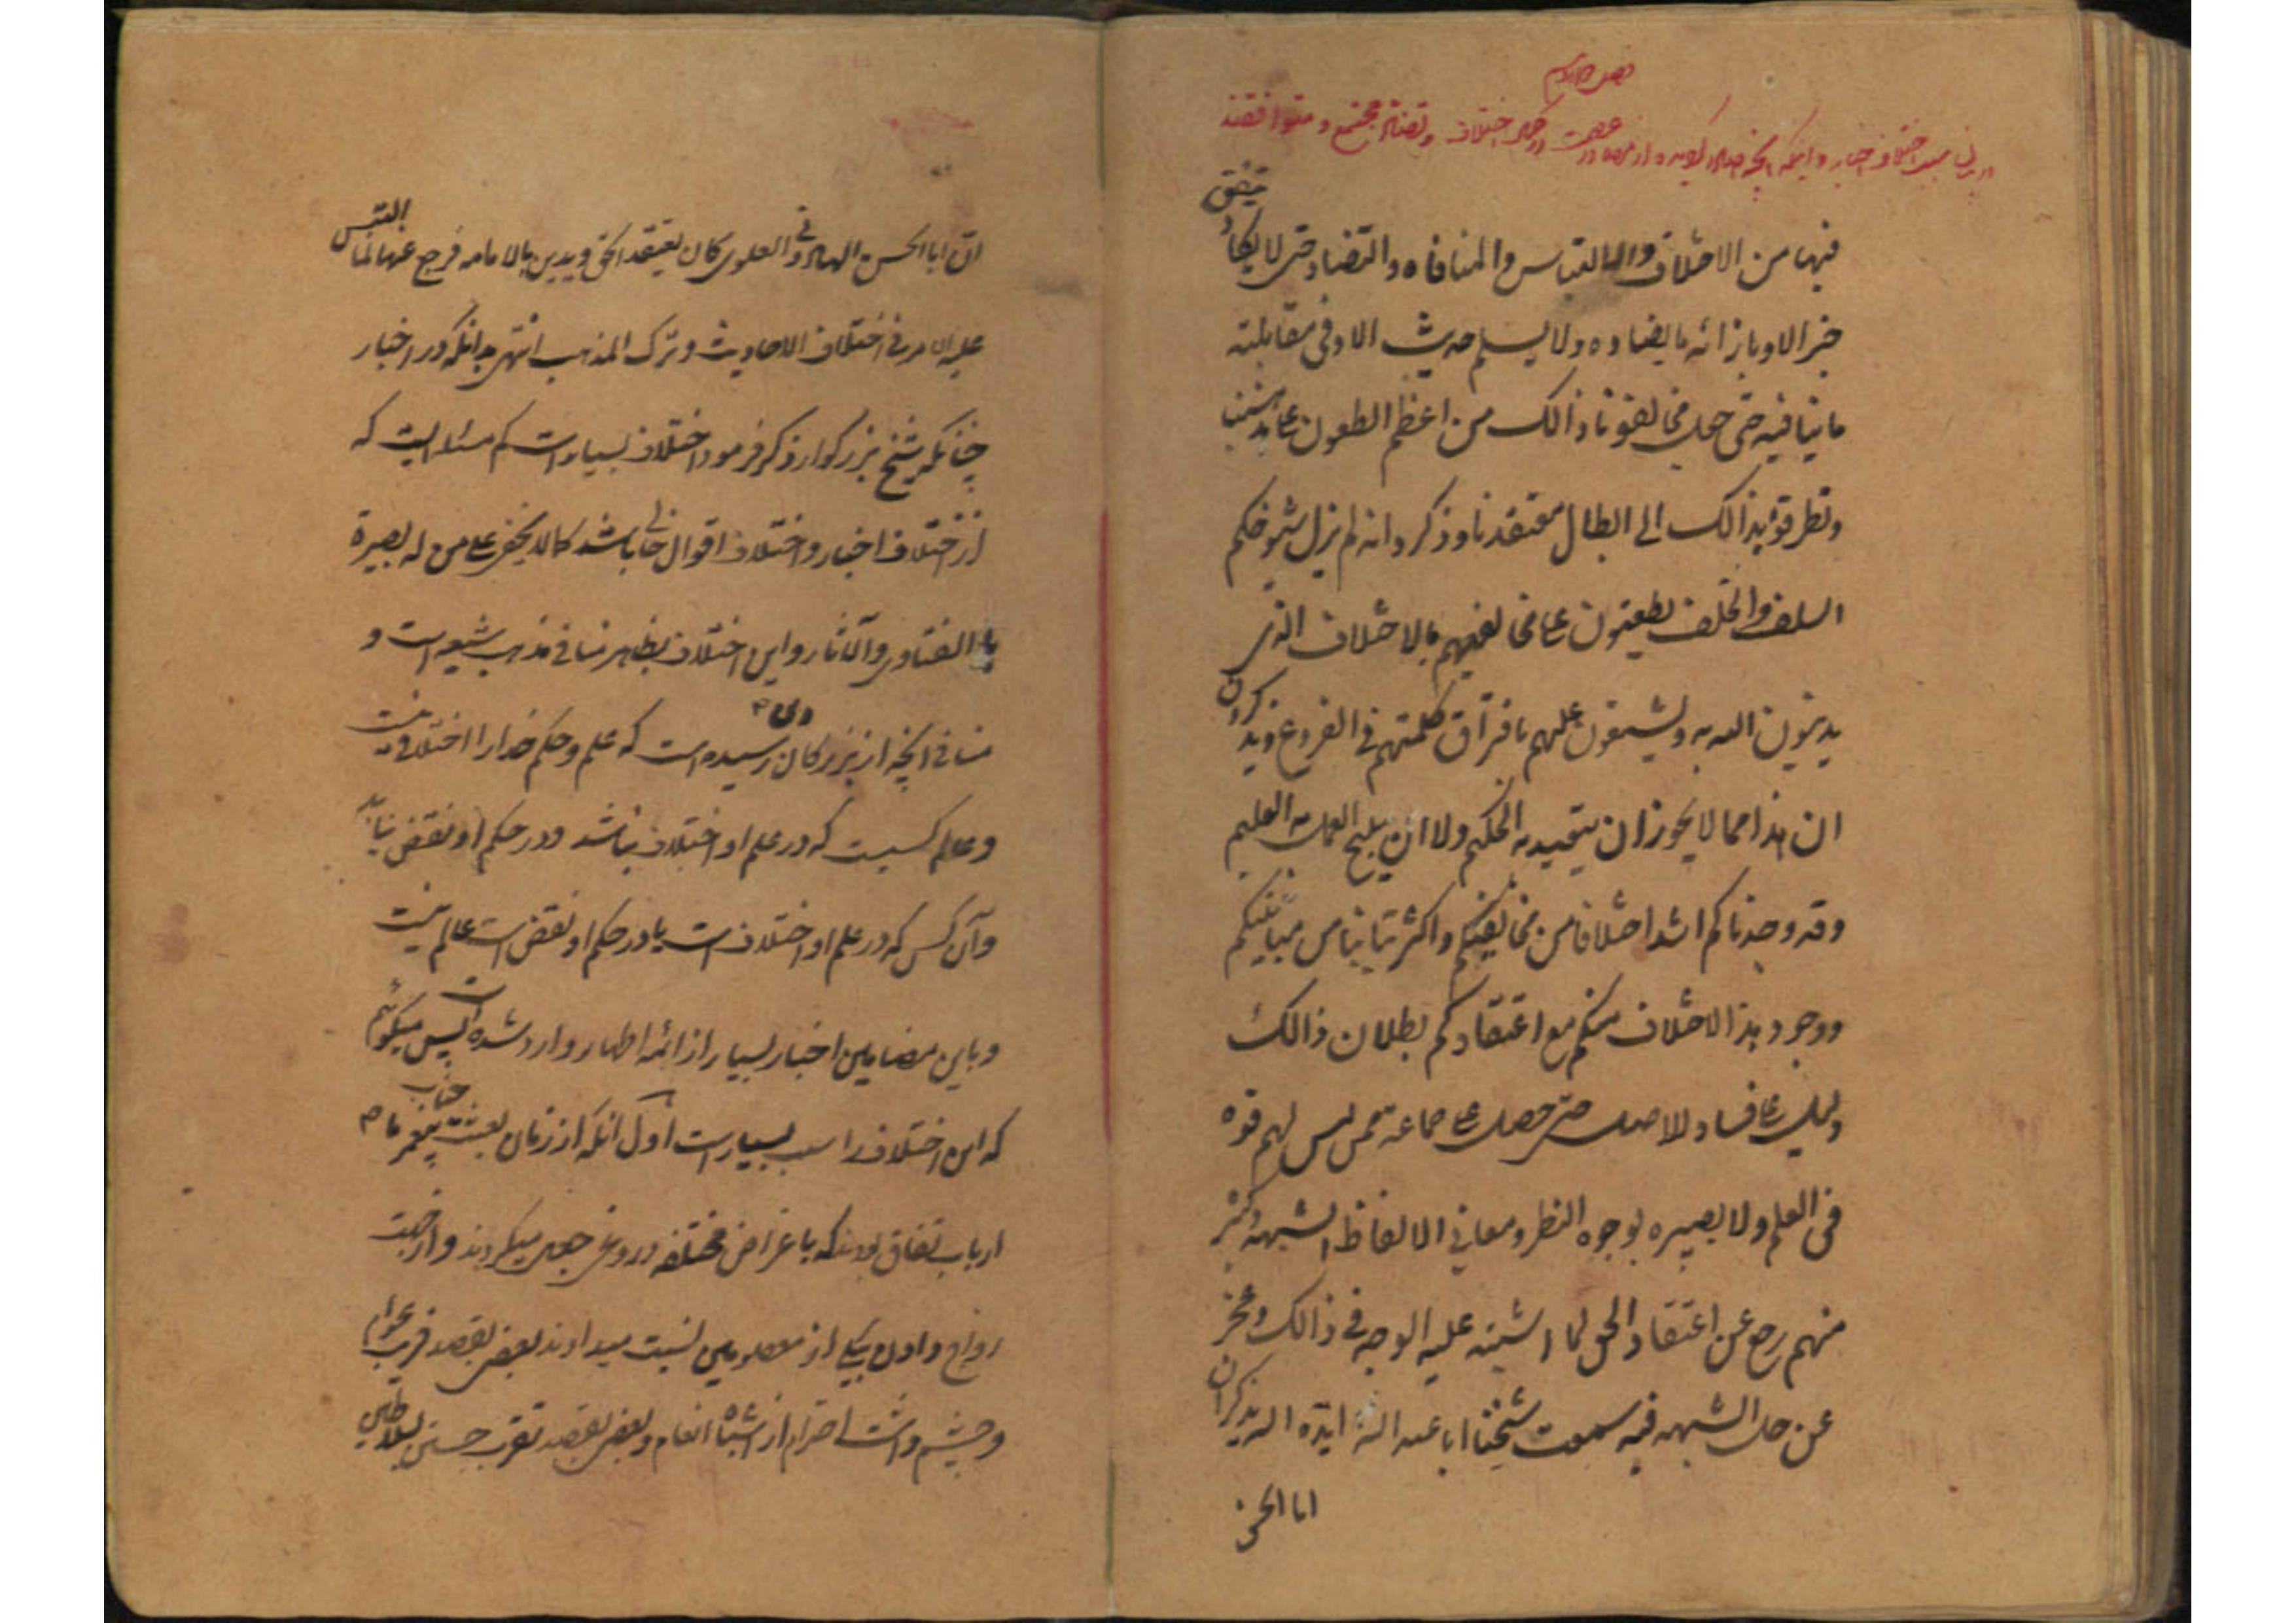 در بیان سبب اختلاف اخبار و اینکه آنچه در اختلاف و تضاد مجتمع و متوافقند
فیها من الاختلاف والالتباس والمنافاه والتضاد حتی لا یکاد یتفق
خبر الا و بازائه ما یضاده ولا یسلم حدیث الا و فی مقابلته
ما ینافیه حتی جعل مخالفونا ذالک من اعظم الطعون علی مذهبنا
وتطرقوا بذالک الی ابطال معتقدنا وذکروا انه لم یزل شیوخکم
السلف والخلف یطعنون علی مخالفیهم بالاختلاف الذی
یدینون الله به ویشنعون علیهم بافتراق کلمتهم فی الفروع ویذکرون
ان هذا مما لا یجوز ان یتعبد به الحکیم ولا ان یبیح العمل به العلیم
وقد وجدناکم اشد اختلافا من مخالفیکم واکثر تباینا من مباینیکم
ووجود هذا الاختلاف منکم مع اعتقادکم بطلان ذالک
دلیل علی فساد الاصل حتی حصل علی جماعه ممن لیس لهم قوه
فی العلم ولا بصیره بوجوه النظر ومعانی الالفاظ الشبهه وکثیر
منهم رجع عن اعتقاد الحق لما اشتبه علیه الوجه فی ذالک وعجز
عن حل الشبهه فیه سمعت شیخنا ابا عبدالله ایده الله یذکر ان
ابا الحسن
ان ابا الحسن الهارونی العلوی کان یعتقد الحق ویدین بالامامه فرجع عنها لما التبس
علیه الامر فی اختلاف الاحادیث وترک المذهب انتهی بدانکه در اخبار
چنانکه شیخ بزرگوار ذکر فرمود اختلاف بسیار است کم مسئله ایست که
از اختلاف اخبار و اختلاف اقوال خالی باشد کما لا یخفی علی من له بصیرة
بالفتاوی والآثار و این اختلاف بظاهر منافی مذهب شیعه است و
منافی آنچه از بزرگان دین رسیده است که علم و حکم خدا را اختلافی نیست
و عالم کسیست که در علم او اختلاف نباشد و در حکم او نقض نیاید
و آن کس که در علم او اختلاف است یا در حکم او نقض است عالم نیست
و باین مضامین اخبار بسیار از ائمه اطهار وارد شده است پس میگوئیم
که این اختلاف را سبب بسیار است اول آنکه از زمان بعثت جناب پیغمبر ما ص
ارباب نفاق بودند که باغراض مختلفه دروغی جعل میکردند و از جهت
رواج و اول بیکی از معصومین نسبت میدادند بعضی بقصد فریب عوام
و چشم داشت احترام از اشباه انعام و بعضی بقصد تقرب جستن بسلاطین